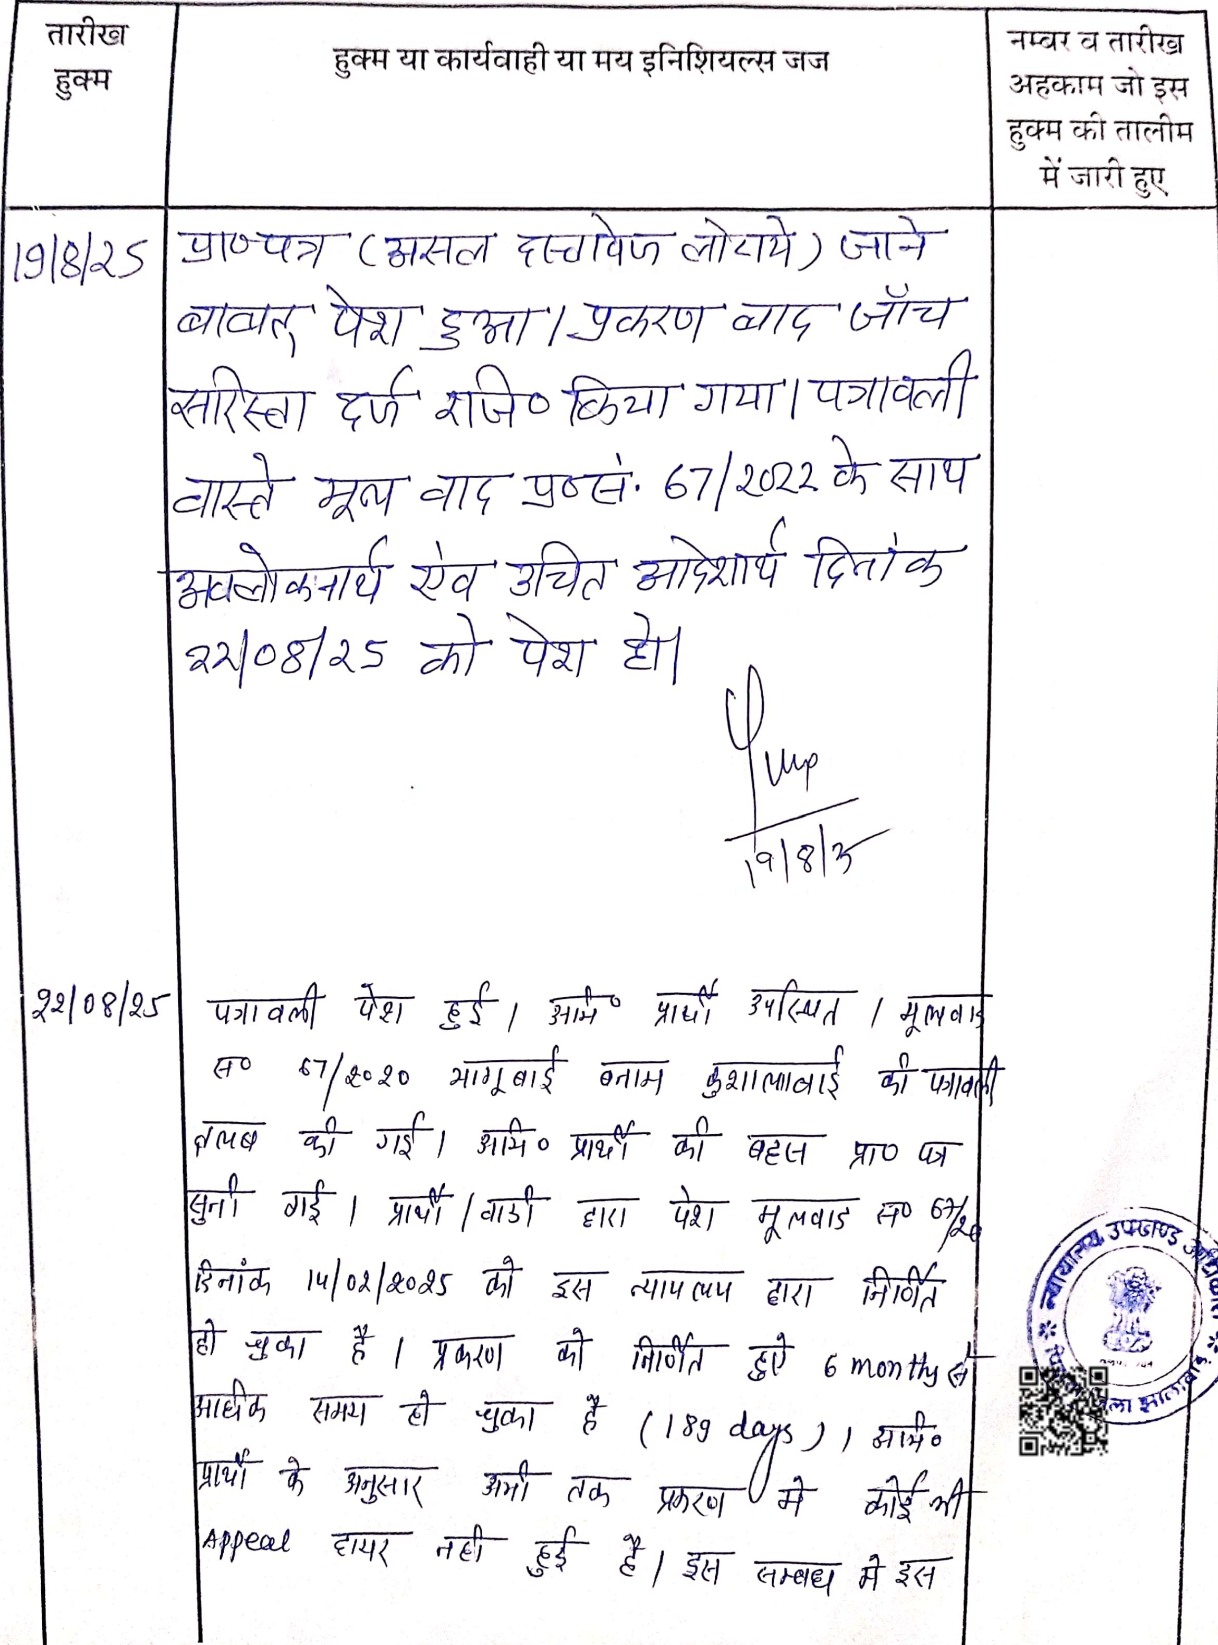 तारीख
हुक्म
हुक्म या कार्यवाही या मय इनिशियल्स जज
नम्बर व तारीख
अहकाम जो इस
हुक्म की तालीम
में जारी हुए
19/8/25 प्रा०पत्र (असल दस्तावेज लोटाये) जाने
बाबत् पेश हुआ। प्रकरण बाद जाँच
सरिस्ता दर्ज राजि० किया गया। पत्रावली
वास्ते मूल वाद प्र०सं. 67/2022 के साथ
अवलोकनार्थ एंव उचित आदेशार्थ दिनांक
22/08/25 को पेश हो।
19/8/25
22/08/25 पत्रावली पेश हुई। अभि० प्रार्थी उपस्थित। मूलवाद
स० 67/2020 भागूबाई बनाम कुशालबाई की पत्रावली
तलब की गई। अभि० प्रार्थी की बहस प्रा० पत्र
सुनी गई। प्रार्थी/वादी द्वारा पेश मूलवाद स० 67/20
दिनांक 14/02/2025 को इस न्यायालय द्वारा निर्णित
हो चुका है। प्रकरण को निर्णित हुऐ 6 months से
अधिक समय हो चुका है (189 days)। अभि०
प्रार्थी के अनुसार अभी तक प्रकरण मे कोई भी
Appeal दायर नही हुई है। इस सम्बध मे इस
न्यायालय उपखण्ड अधिकारी
जिला झालावाड़